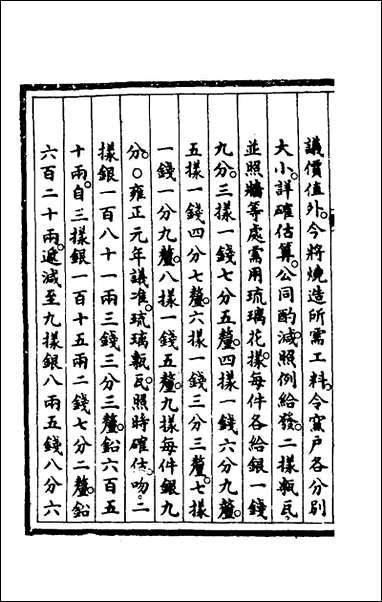 議價值外。今將燒造所需工料。令窰戶各分別
大小。詳確估算。公同酌減。照例給發。二樣瓶瓦。
並照牆等處需用琉璃花樣。每件各給銀一錢
九分。三樣一錢七分五釐。四樣一錢六分九釐。
五樣一錢四分七釐。六樣一錢三分三釐。七樣
一錢一分九釐。八樣一錢五釐。九樣每件銀九
分。○雍正元年議准。琉璃甎瓦。照時確估。吻。二
樣銀一百八十一兩三錢三分三釐。鉛六百五
十兩。自三樣銀一百十五兩二錢七分二釐。鉛
六百二十兩。遞減至九樣銀八兩五錢八分六